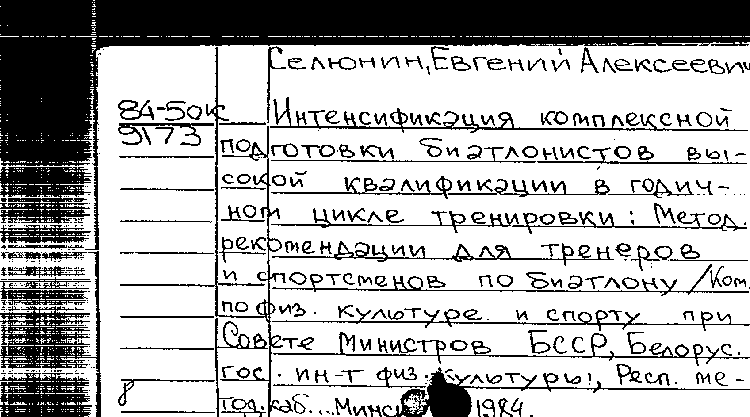 Селюнин, Евгений Алексеевич
84-50к
9173
Интенсификация комплексной
подготовки биатлонистов вы-
сокой квалификации в годич-
ном цикле тренировки: Метод.
рекомендации для тренеров
и спортсменов по биатлону / Ком.
по физ. культуре и спорту при
Совете Министров БССР, Белорус.
гос. ин-т физ. культуры, Респ. ме-
тод. каб... Минск 1984.
8